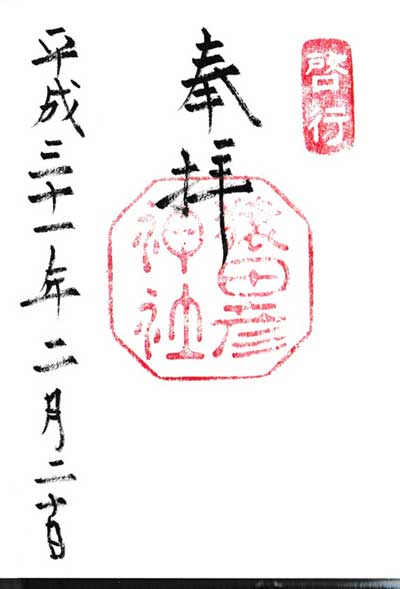 啓行
奉拝
猿田彦
神社
平成三十一年二月二十日